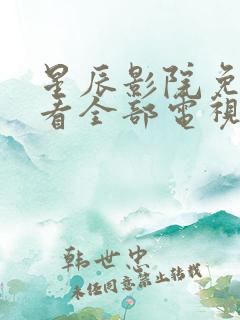 星辰影院免
看全部電視
韩世忠
未经同意禁止转载